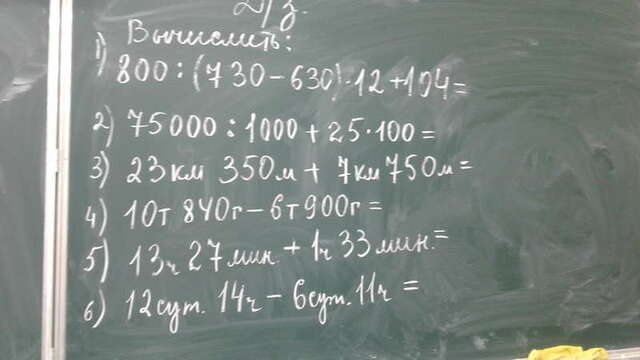 Д/з.
Вычислить:
1) 800 : (730 - 630) · 12 + 194 =
2) 75000 : 1000 + 25 · 100 =
3) 23 км 350 м + 7 км 750 м =
4) 10т 840г - 6т 900г =
5) 13ч 27 мин. + 1ч 33 мин. =
6) 12 сут. 14ч - 6 сут. 11ч =